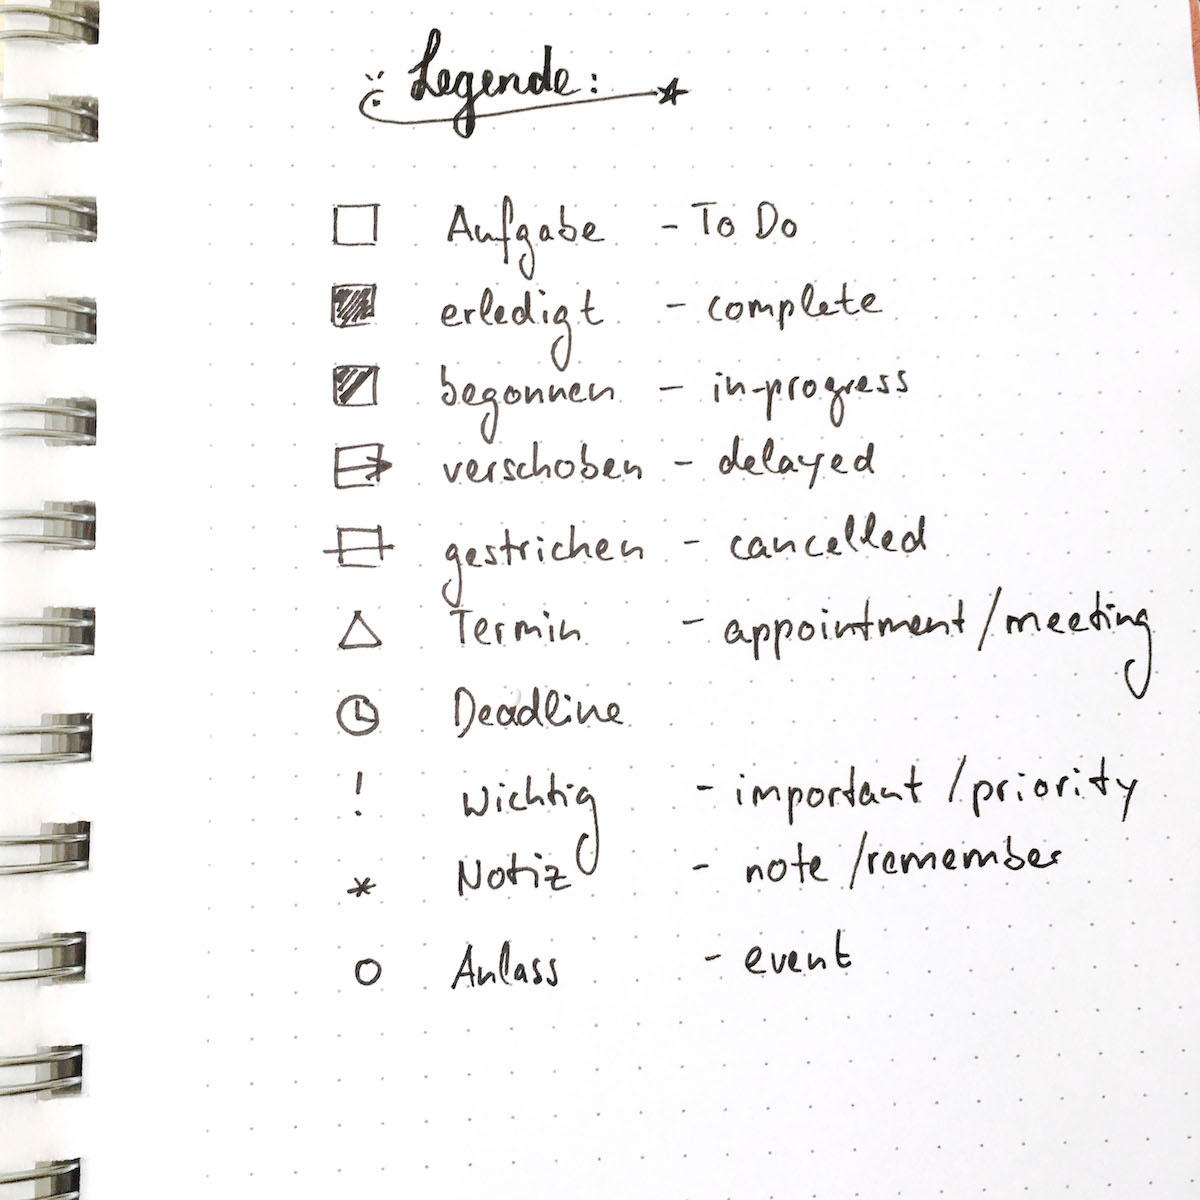 Legende:
Aufgabe - To Do
erledigt - complete
begonnen - in-progress
verschoben - delayed
gestrichen - cancelled
Termin - appointment/meeting
Deadline
! wichtig - important/priority
* Notiz - note/remember
Anlass - event